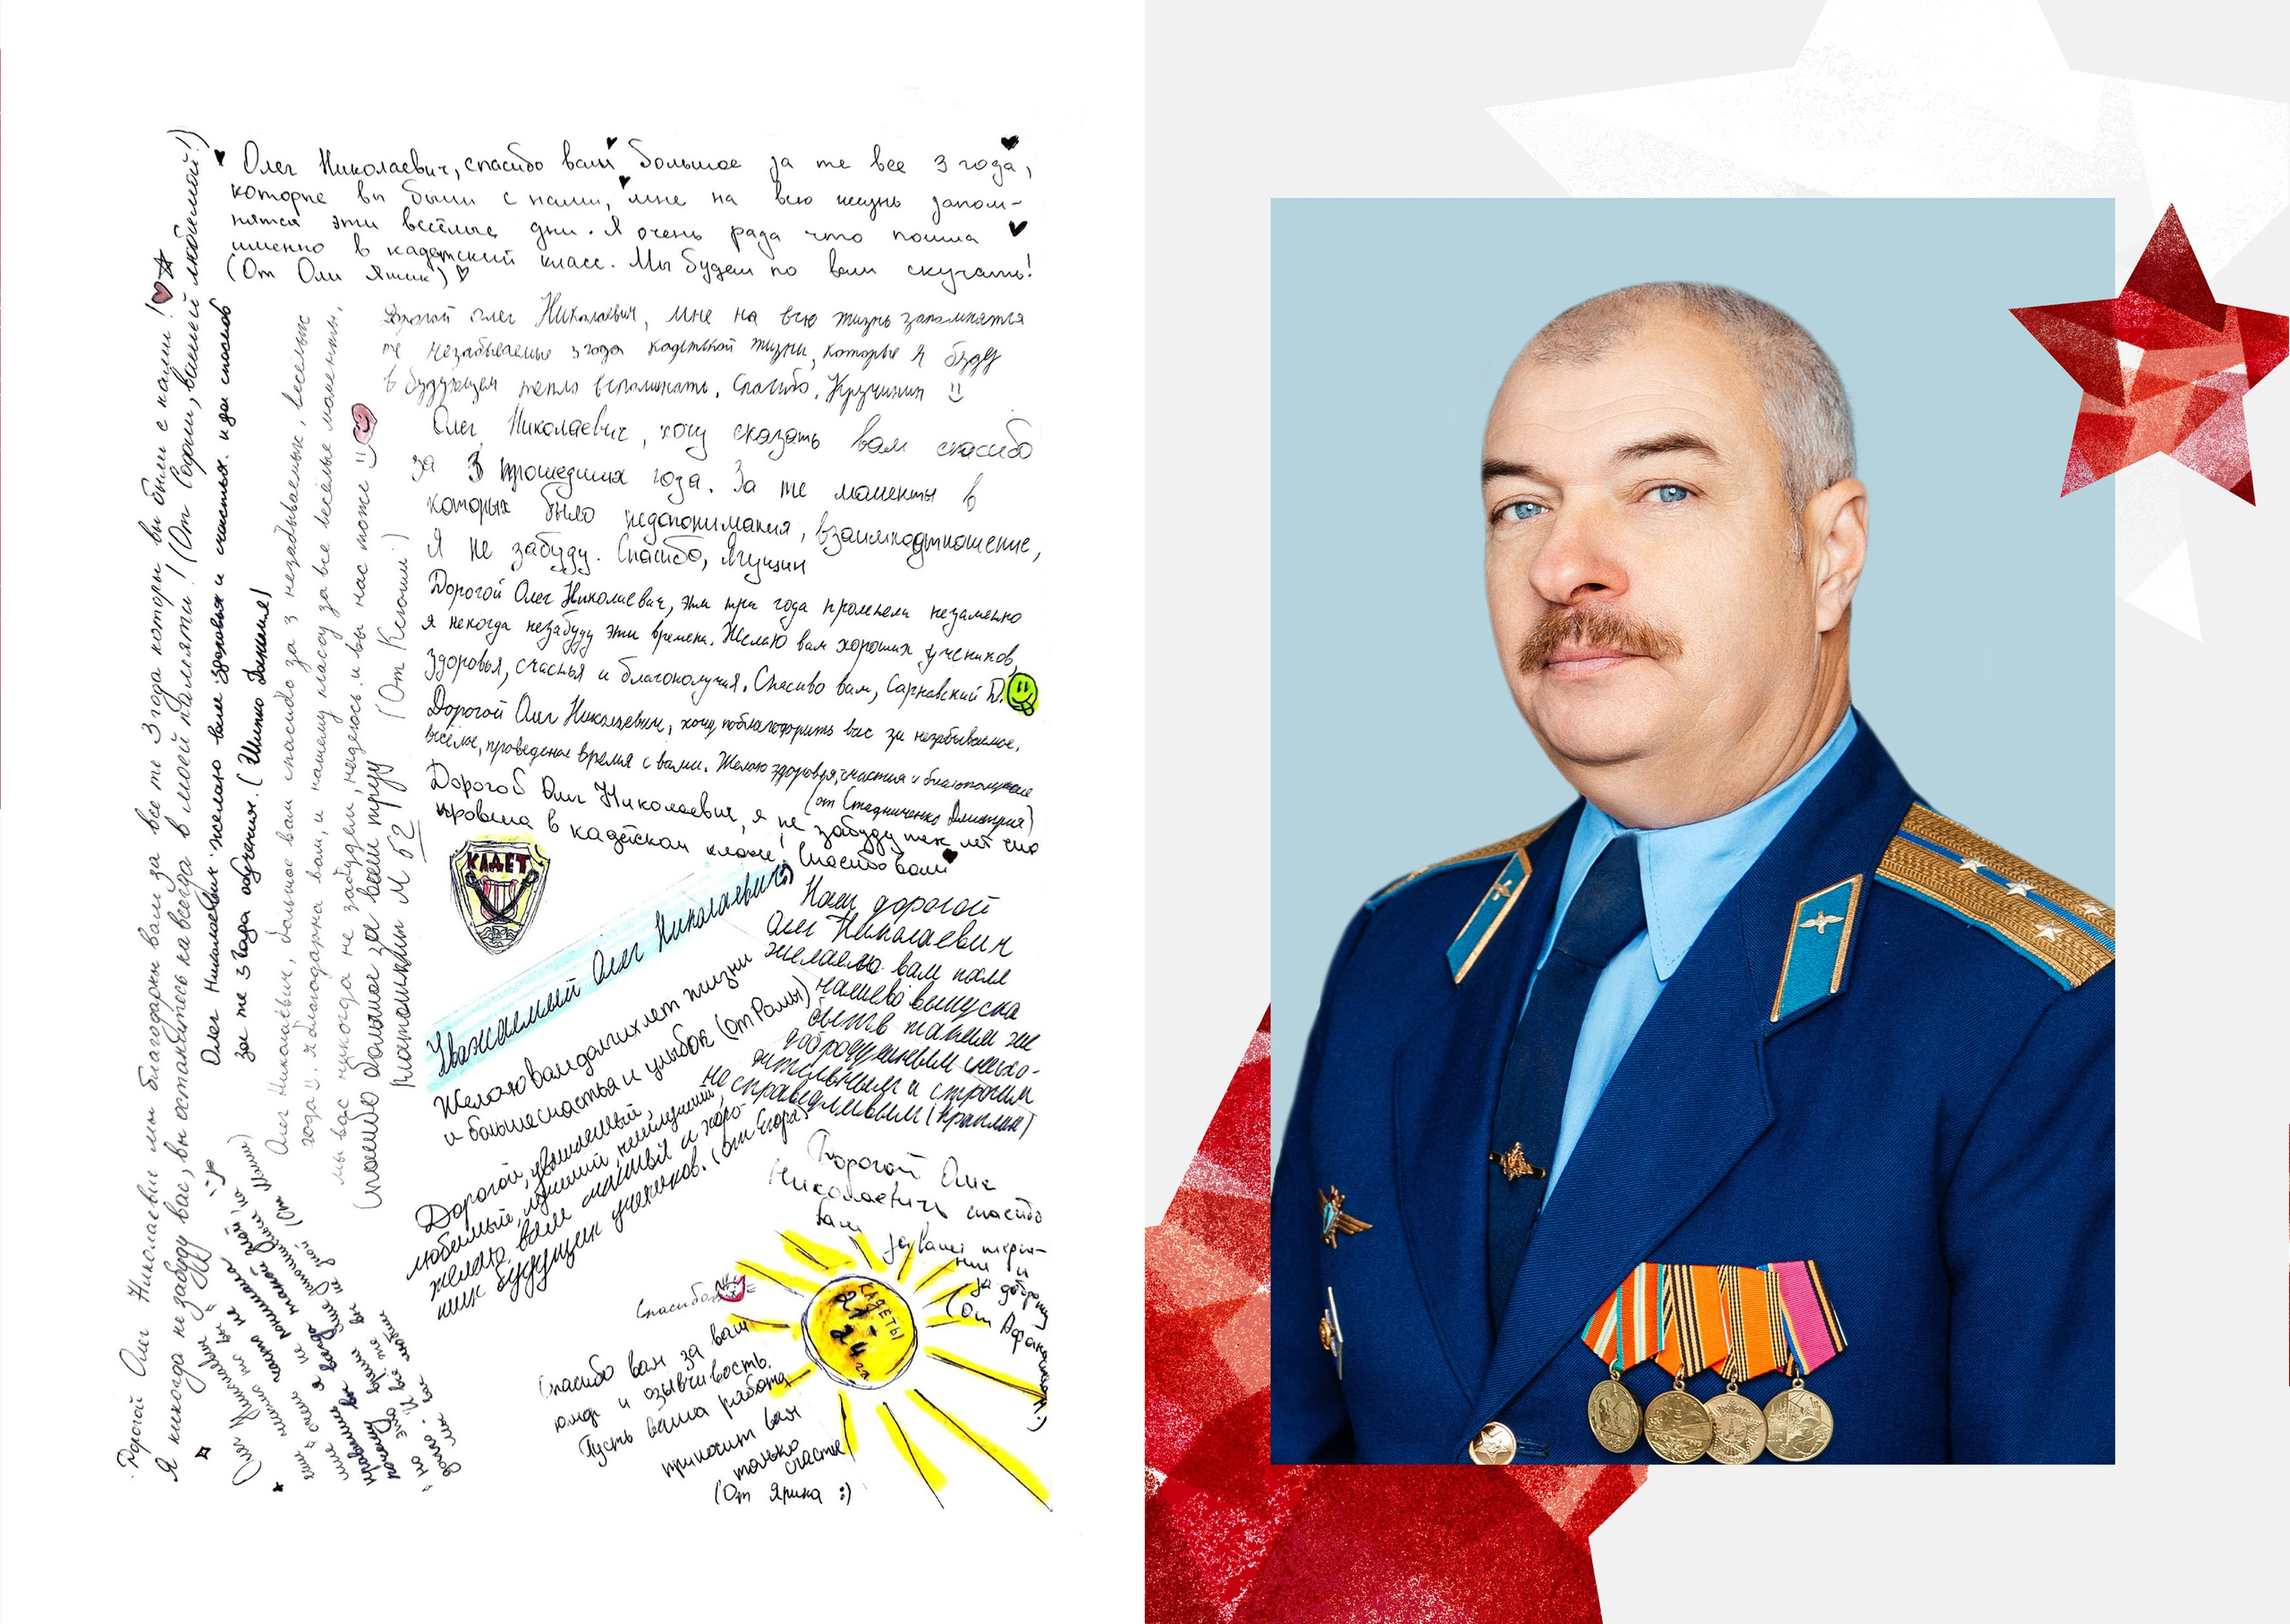 Олег Николаевич, спасибо вам большое за те все 3 года,
которые вы были с нами, мне на всю жизнь запом-
нятся эти весёлые дни. Я очень рада что пошла
именно в кадетский класс. Мы будем по вам скучать!
(От Оли Яшик)
Дорогой олег Николаевич, мне на всю жизнь запомнятся
те незабываемые 3 года кадетской жизни, которые я буду
в будующем тепло вспоминать. Спасибо,
Олег Николаевич, хочу сказать вам спасибо
за 3 прошедших года. За те моменты в
которых было недопонимания,
я не забуду. Спасибо,
Дорогой Олег Николаевич, эти три года пролетели незаметно
я некогда незабуду эти времена. Желаю вам хороших учеников,
здоровья, счастья и благополучия. Спасибо вам, Сарнавский
Дорогой Олег Николаевич, хочу поблагодарить вас за незабываемое,
весёлое, проведеное время с вами. Желаю здоровья, счастия и благополучие
(от Стадниченко Дмитрия)
Дорогой Олег Николаевич, я не забуду лет что
провела в кадетском классе, Спасибо вам
КАДЕТ
Уважаемый Олег Николаевич,
Желаю вам долгих лет жизни
и больше счастья и улыбок (от Ромы)
Наш дорогой
Олег Николаевич
желаем вам после
нашего выпуска
быть в таким же
добродушевым
и строгим
но справедливым
Дорогой, уважаемый,
любимый, лучший наилучший,
желаю вам милых и хоро-
ших будущих учеников. (От Егора)
Дорогой Олег
Николаевич спасибо
вам
за ваше терпе-
ние и
за доброту
(От
Спасибо
КАДЕТЫ
21-
24
Спасибо вам за ваш
юмор и озывчивость.
Пусть ваша работа
приносит вам
только
счастье
(От Ярика :)
Дорогой Олег Николаевич мы благодарны вам за все те 3 года которы вы были с нами!
Я никогда не забуду вас, вы останитесь навсегда в моей памяти! (От Софии, вашей любимой!)
Олег Николаевич желаю вам здоровья и счастья. и да спасибо
за те 3 года обучения. (Шитко
Олег Николаевич, большое вам спасибо за 3 незабываемых, весёлых
года!! я благодарна вам, и нашему классу за все весёлые моменты,
мы вас никогда не забудем, надеюсь и вы нас тоже
Спасибо большое за ваш труд (От Ксюши)